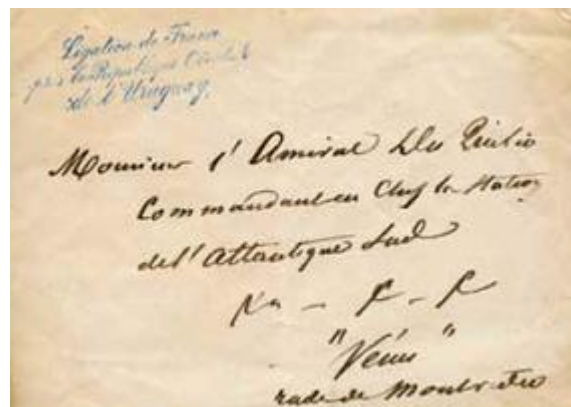 Légation de France
près la République Orientale
de l'Uruguay
Monsieur l'Amiral Du Quilio
Commandant en Chef la Station
de l'Atlantique Sud
"Vénus"
rade de Montevideo